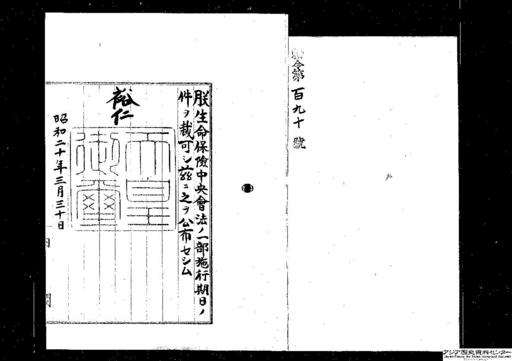 勅令第百九十號
朕生命保險中央會法ノ一部施行期日ノ
件ヲ裁可シ茲ニ之ヲ公布セシム
裕仁
天皇御璽
昭和二十年三月三十日
アジア歴史資料センター